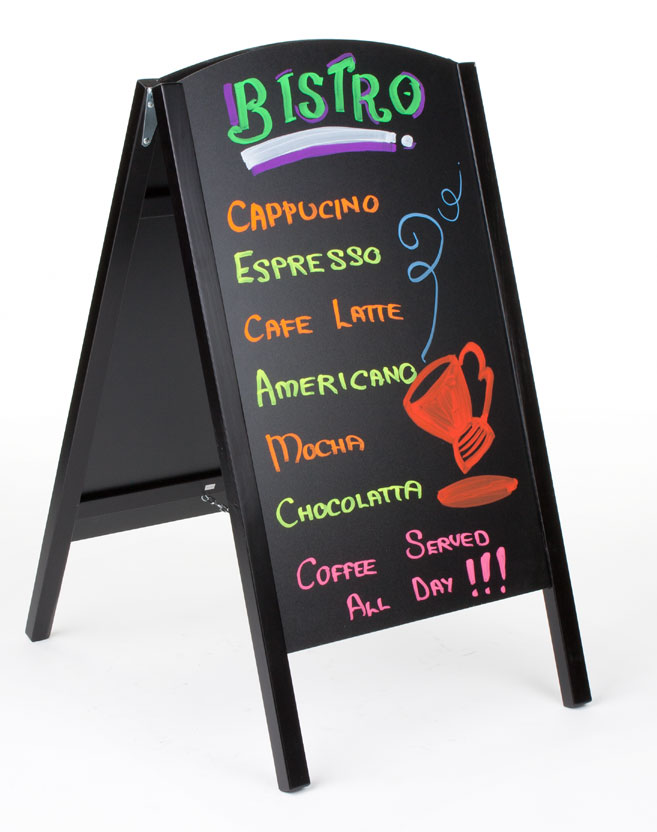 BISTRO
CAPPUCINO
ESPRESSO
CAFE LATTE
AMERICANO
MOCHA
CHOCOLATTA
COFFEE SERVED
ALL DAY !!!